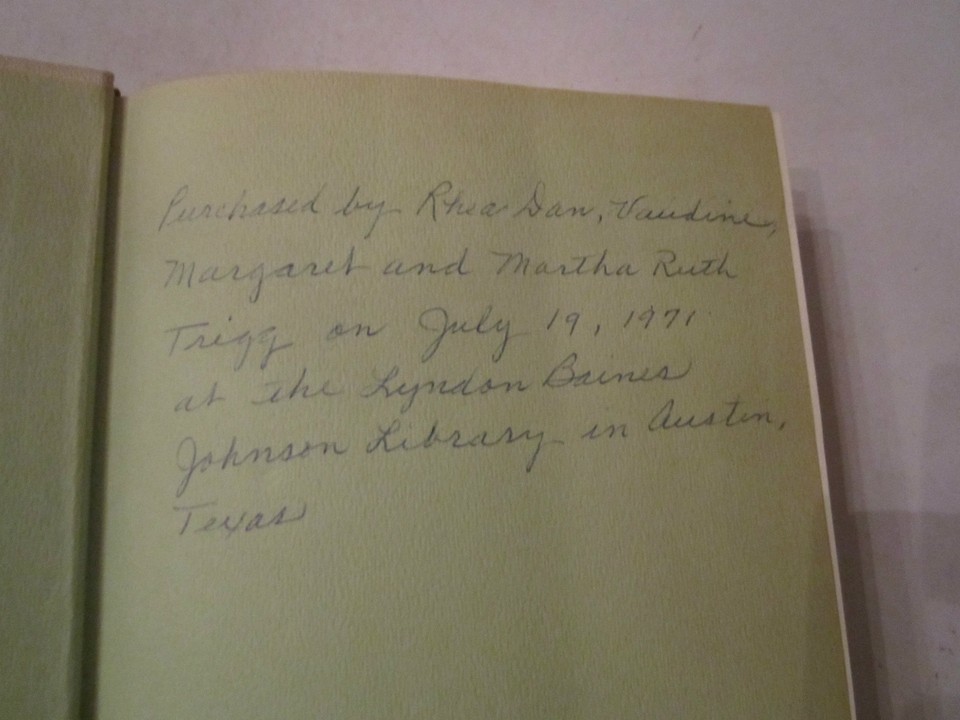 Purchased by Rhea Dan, Vaudine,
Margaret and Martha Ruth
Trigg on July 19, 1971
at the Lyndon Baines
Johnson Library in Austin,
Texas